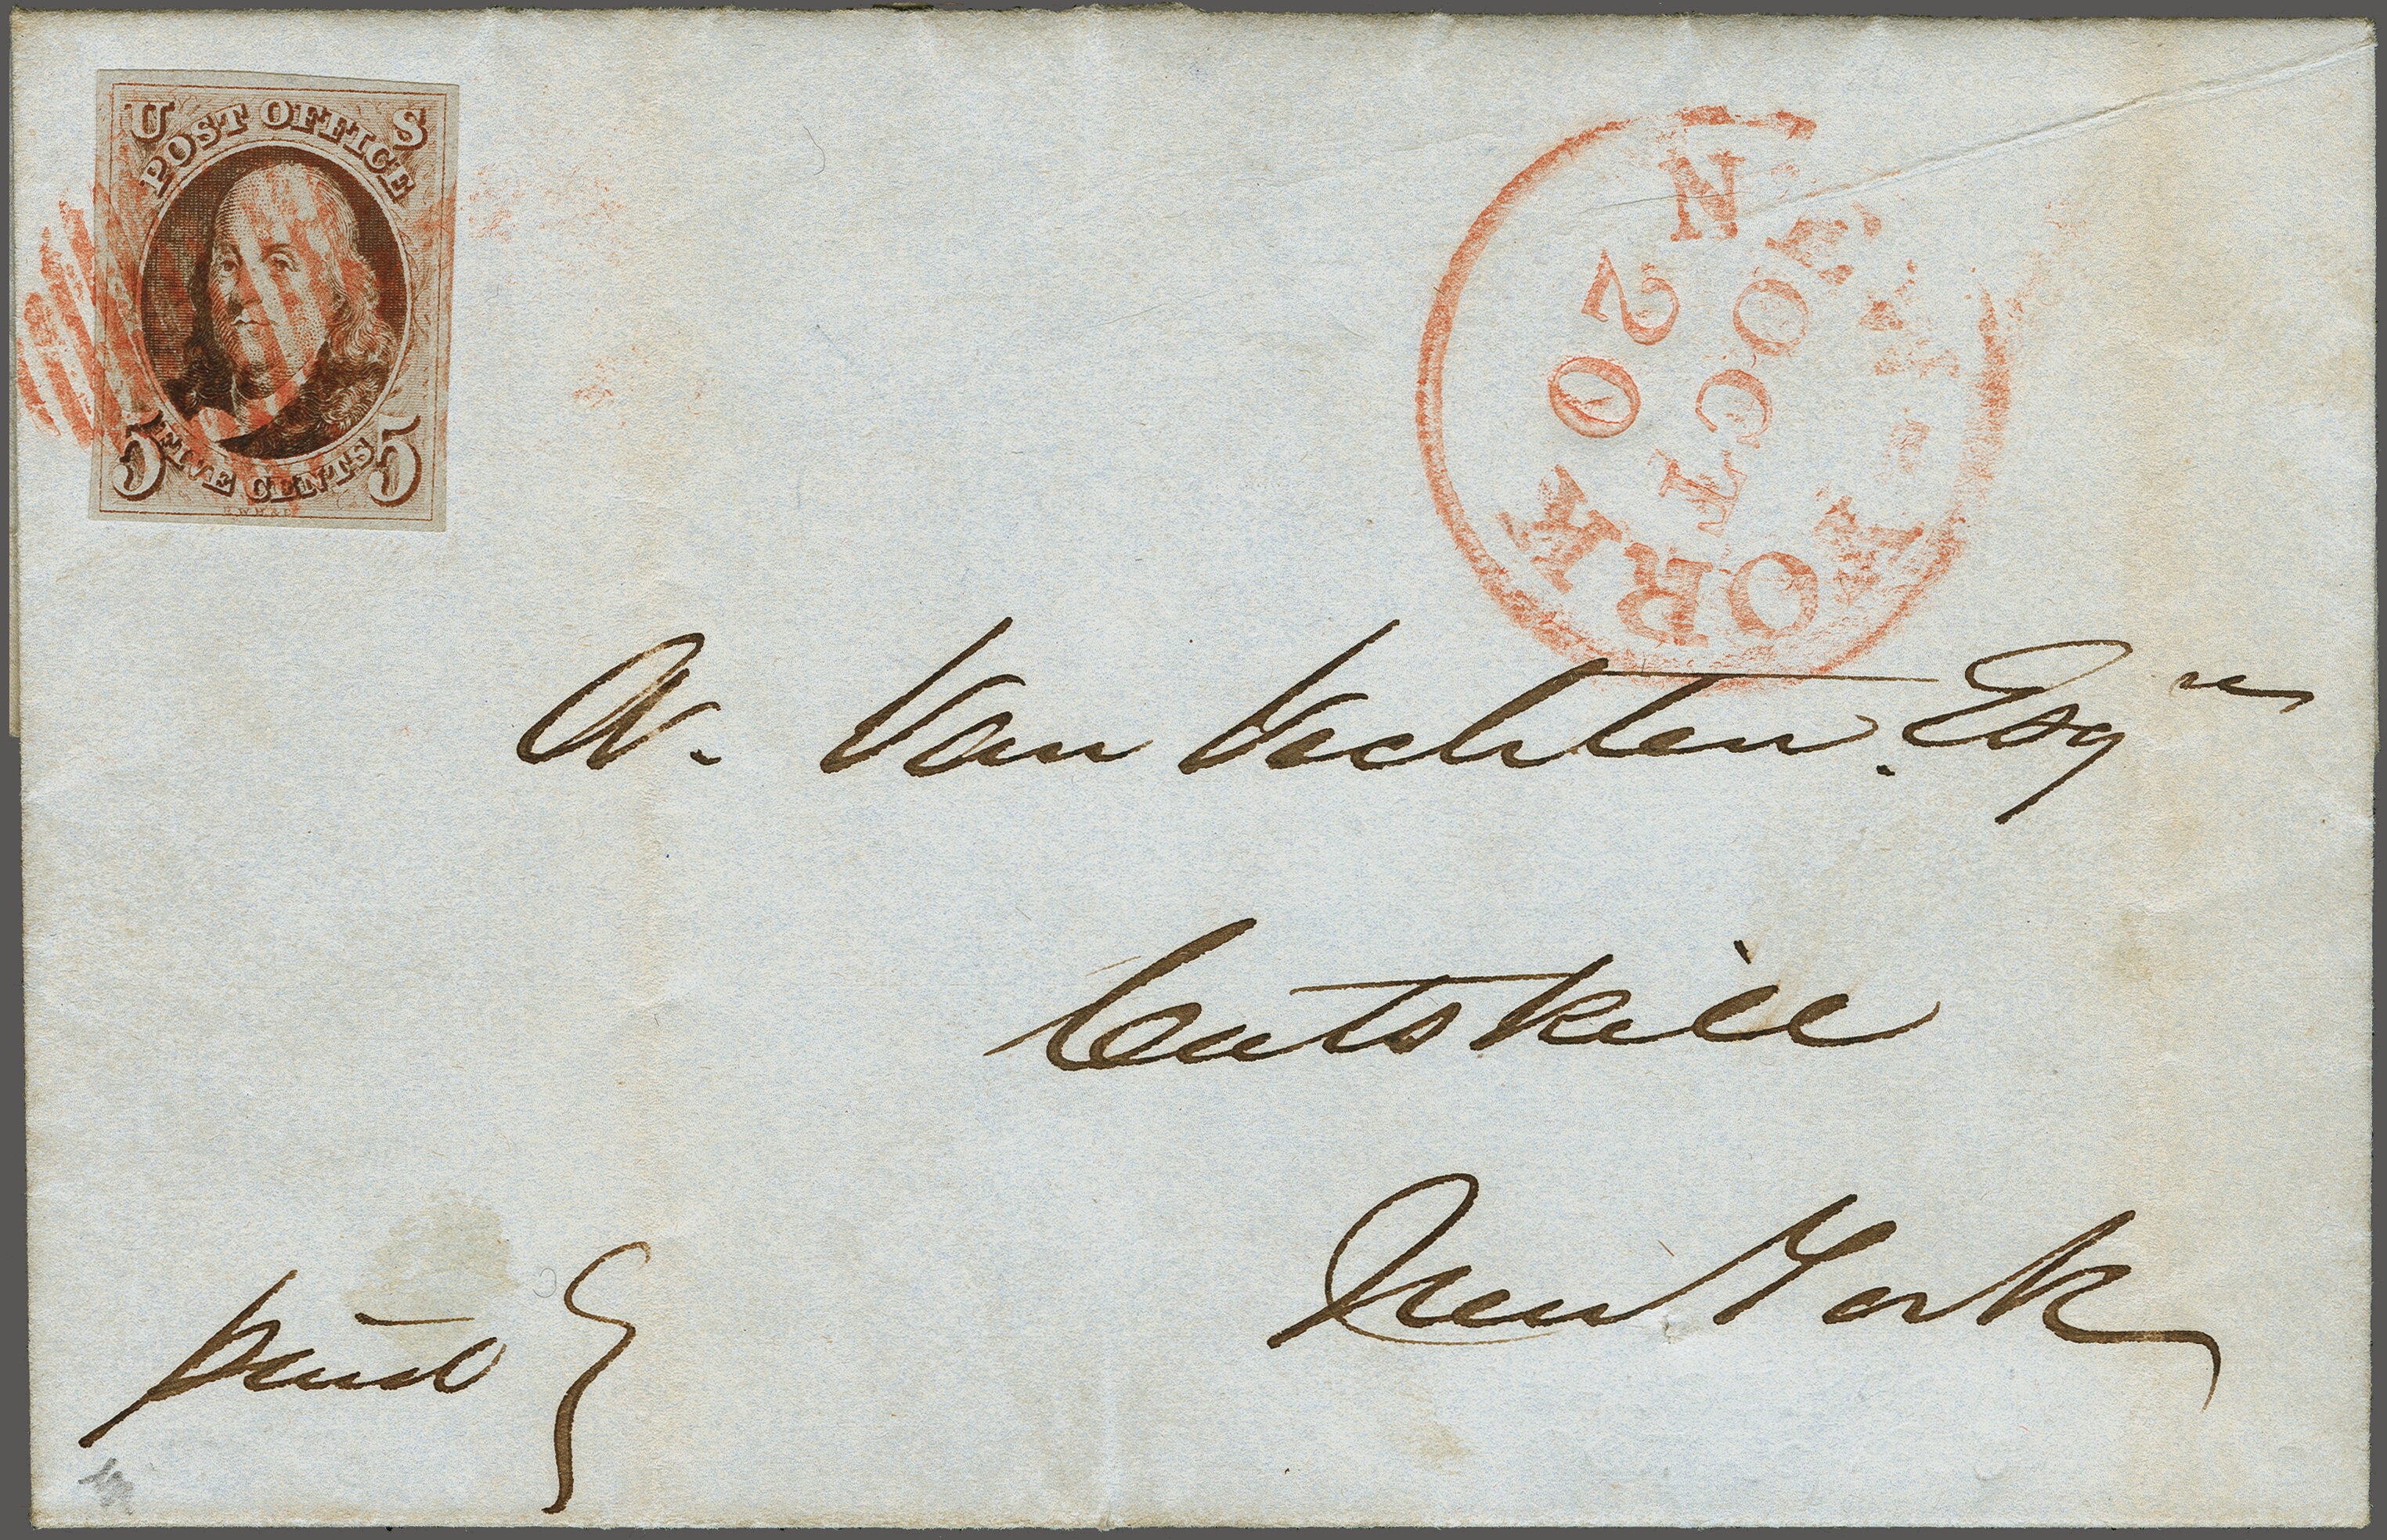 U S
POST OFFICE
5 FIVE CENTS 5
R.W.H.&E.
NEW-YORK
OCT
20
A. Van Vechten. Esqr
Catskill
New York
paid